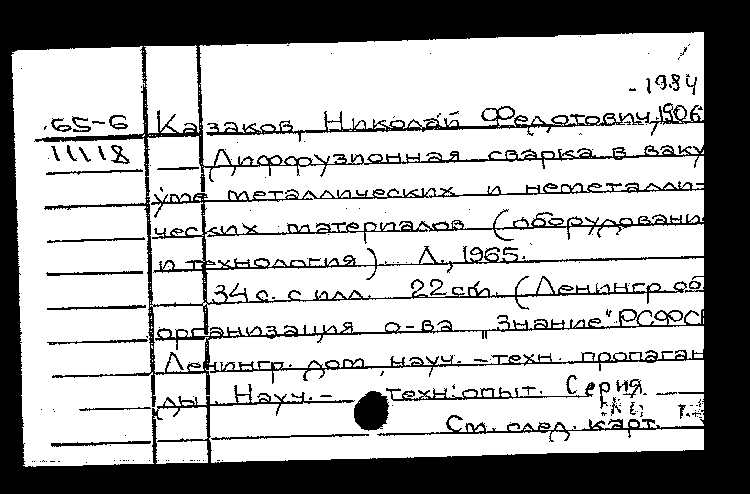 - 1984
65-6 Казаков, Николай Федотович, 1906
11118 Диффузионная сварка в ваку
уме металлических и неметалли-
ческих материалов (оборудовани
и технология). Л., 1965.
34 с. с илл. 22 см. (Ленингр об
организация о-ва „Знание" РСФСР
Ленингр. дом науч.-техн. пропаган
ды. Науч.- техн. опыт. Серия
См. след. карт.